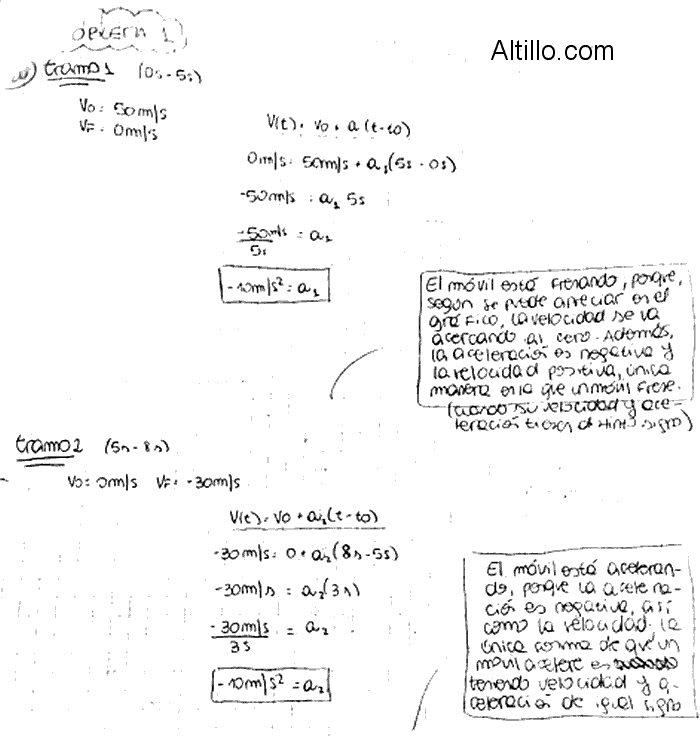 Altillo.com
1
tramo 1 (0s-5s)
Vo = 50m/s
VF = 0m/s
V(t) = Vo + a (t-to)
0m/s = 50m/s + a₁(5s - 0s)
-50m/s = a₁ 5s
-50m/s = a₁
5s
-10m/s² = a₁
El móvil está frenando, porque,
según se puede apreciar en el
gráfico, la velocidad se va
acercando al cero. Además,
la aceleración es negativa y
la velocidad positiva, única
manera en la que un móvil frene.
(cuando su velocidad y ace-
leración tienen distinto signo)
tramo 2 (5s-8s)
Vo = 0m/s VF = -30m/s
V(t) = Vo + a₂(t-to)
-30m/s = 0 + a₂(8s-5s)
-30m/s = a₂(3s)
-30m/s = a₂
3s
-10m/s² = a₂
El móvil está aceleran-
do, porque la acelera-
ción es negativa, así
como la velocidad. La
única forma de que un
móvil acelere es
teniendo velocidad y a-
celeración de igual signo